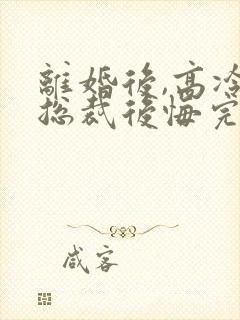 離婚後,高冷
總裁後悔完
咸客